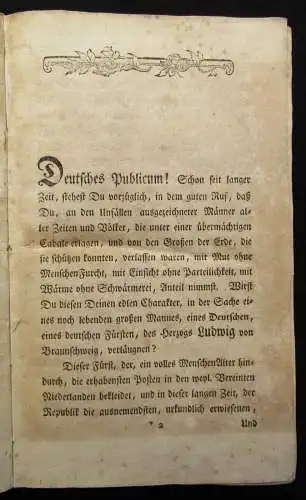 Deutsches Publicum! Schon seit langer
Zeit, stehest Du vorzüglich, in dem guten Ruf, daß
Du, an den Unfällen ausgezeichneter Männer al-
ler Zeiten und Völker, die unter einer übermächtigen
Cabale erlagen, und von den Großen der Erde, die
sie schützen konnten, verlassen waren, mit Mut ohne
MenschenFurcht, mit Einsicht ohne Parteilichkeit, mit
Wärme ohne Schwärmerei, Anteil nimmst. Wirst
Du diesen Deinen edlen Charakter, in der Sache ei-
nes noch lebenden großen Mannes, eines Deutschen,
eines deutschen Fürsten, des Herzogs Ludwig von
Braunschweig, verläugnen?
Dieser Fürst, der, ein volles MenschenAlter hin-
durch, die erhabensten Posten in den weyl. Vereinten
Niederlanden bekleidet, und in dieser langen Zeit, der
Republik die ausnemendsten, urkundlich erwiesenen,
* 2 Und